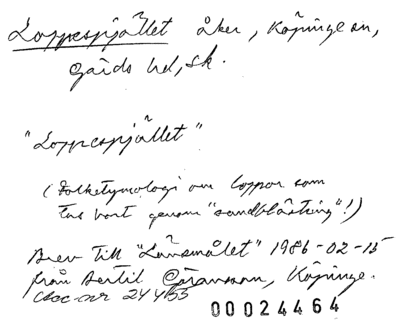 Loppespjället åker, Köpinge sn,
Gärds hd, Sk.
"Loppespjället"
(Folketymologi om loppor som
tas bort genom "sandblästring"!)
Brev till "Länsmålet" 1986-02-15
från Bertil Göransson, Köpinge.
Acc-nr 24455
00024464